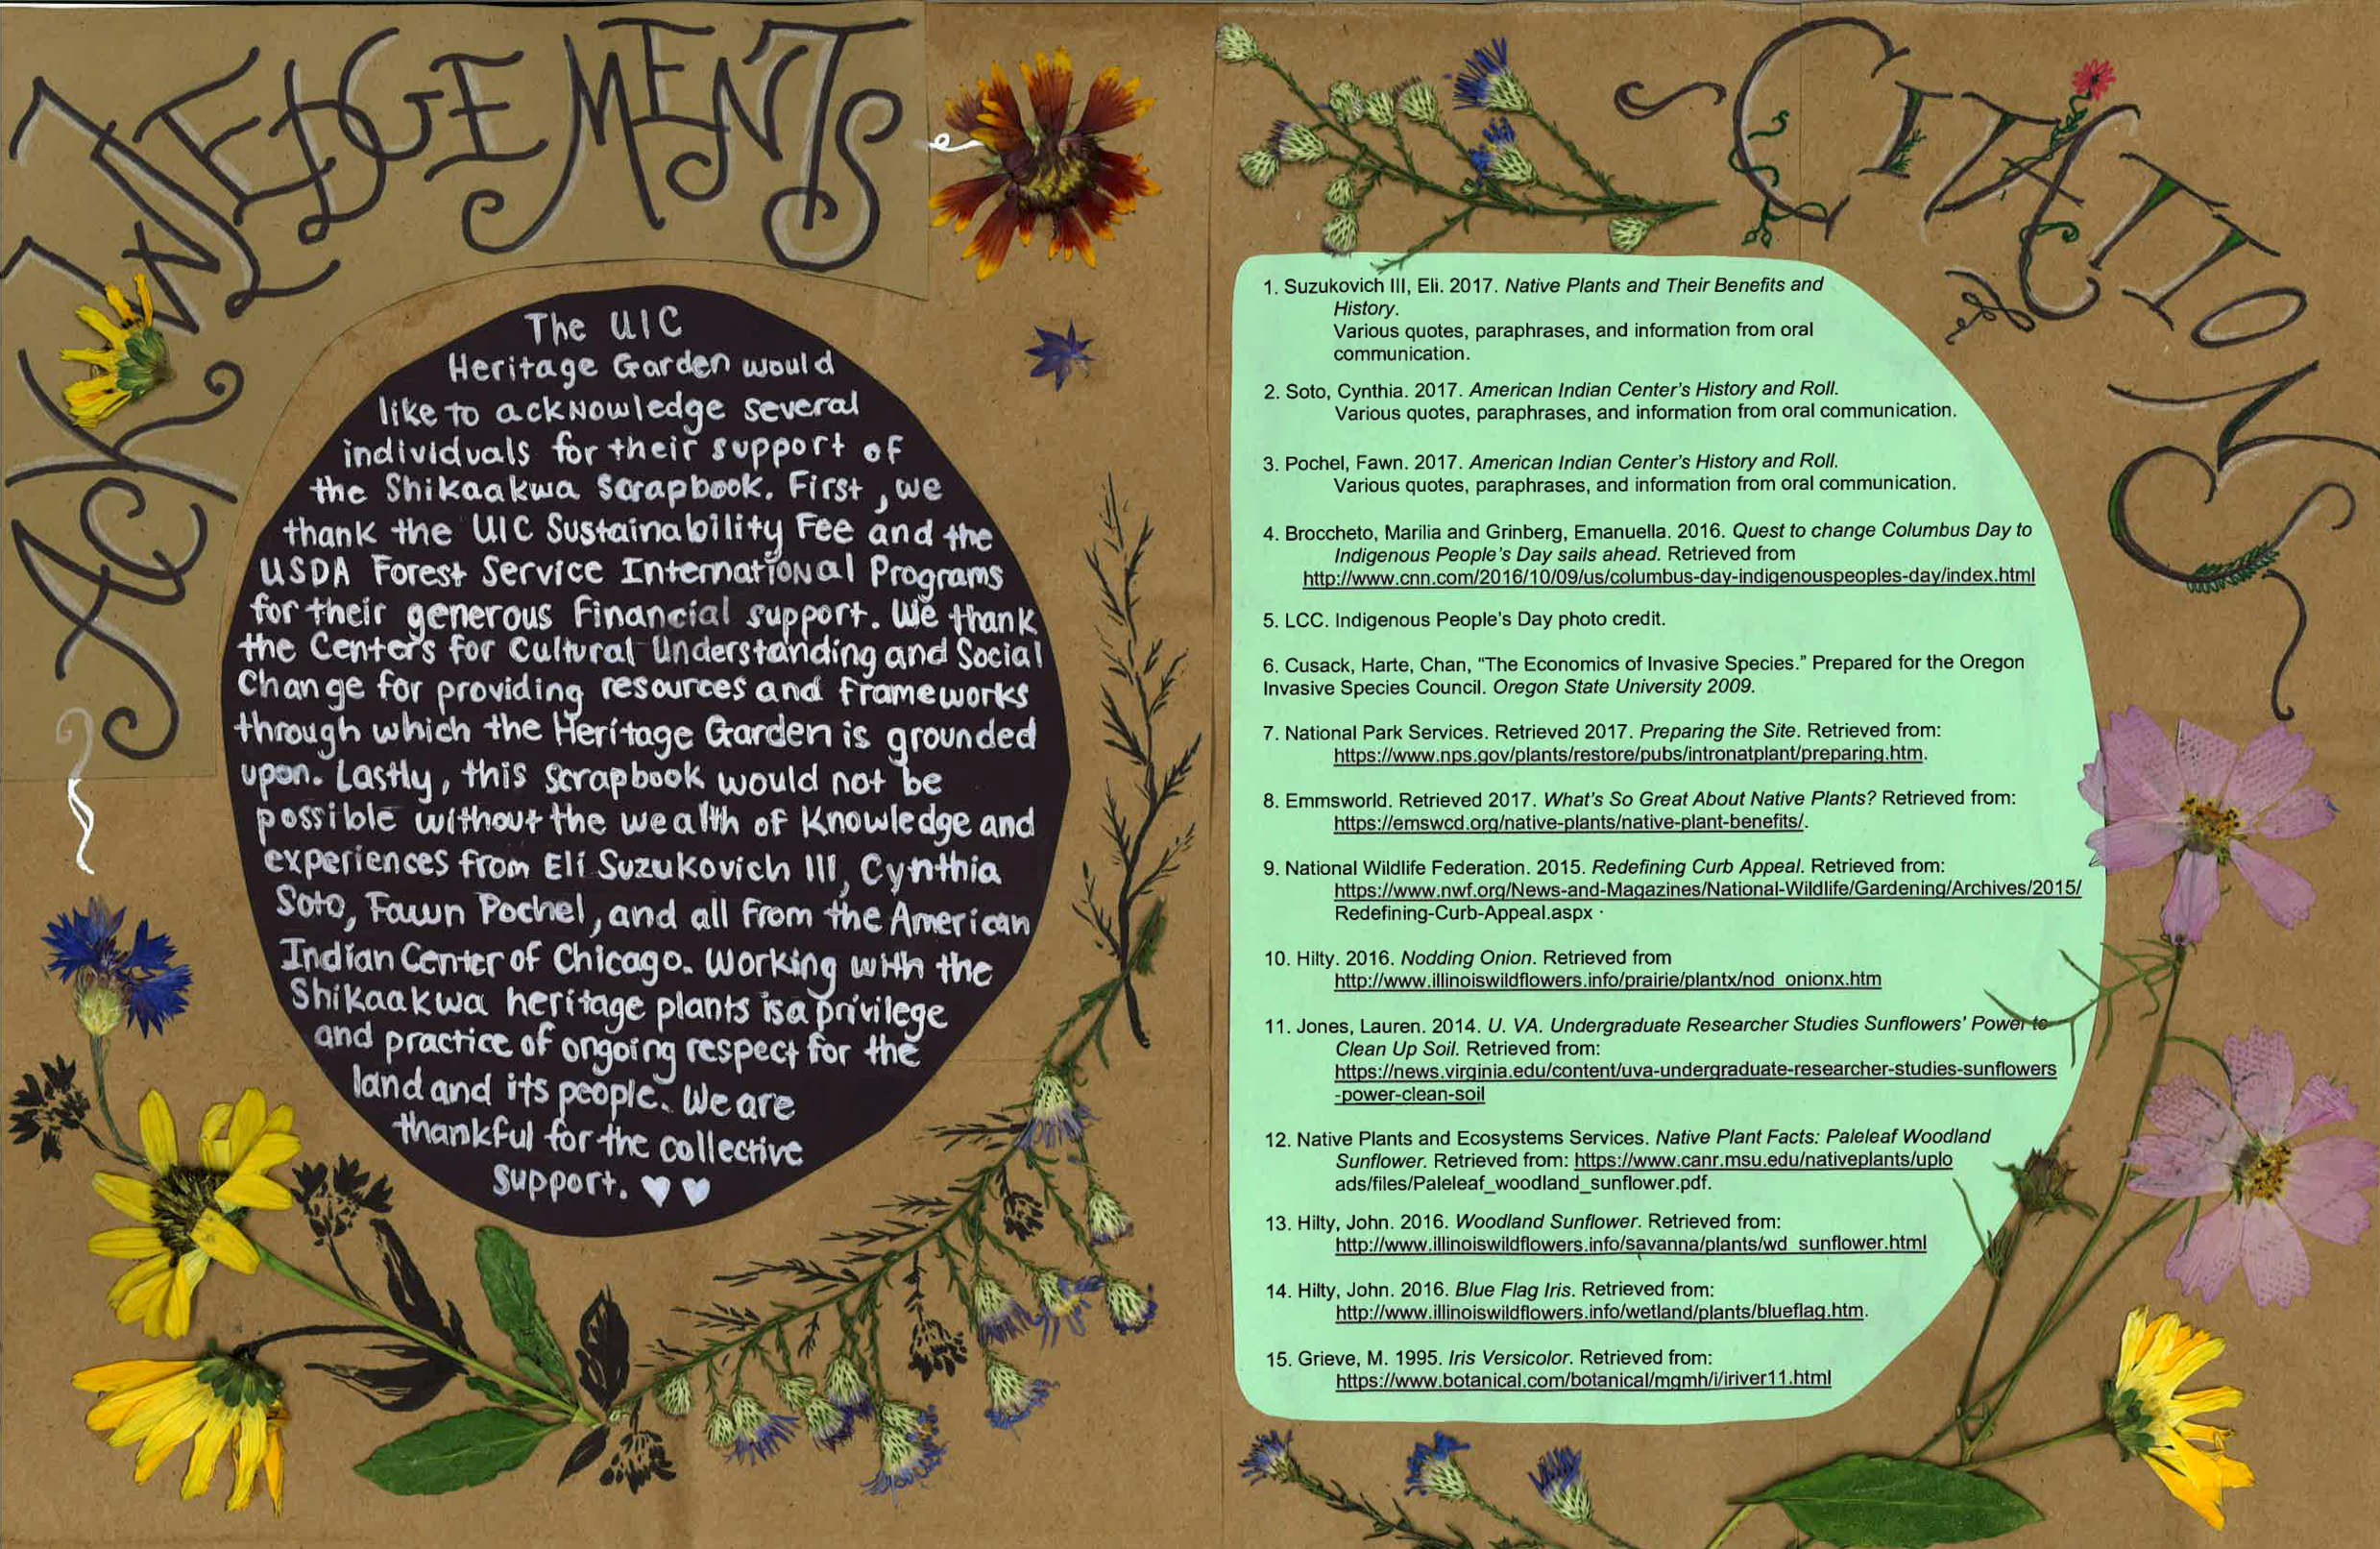 ACKNWLEDGEMENTS
The UIC
Heritage Garden would
like to acknowledge several
individuals for their support of
the Shikaakwa Scrapbook. First, we
thank the UIC Sustainability Fee and the
USDA Forest Service International Programs
for their generous Financial support. We thank
the Centers for Cultural Understanding and Social
Change for providing resources and frameworks
through which the Heritage Garden is grounded
upon. Lastly, this scrapbook would not be
possible without the wealth of Knowledge and
experiences from Eli Suzukovich III, Cynthia
Soto, Fawn Pochel, and all from the American
Indian Center of Chicago. Working with the
Shikaakwa heritage plants is a privilege
and practice of ongoing respect for the
land and its people. We are
thankful for the collective
support. ♥♥
CITATIONS
1. Suzukovich III, Eli. 2017. Native Plants and Their Benefits and
History.
Various quotes, paraphrases, and information from oral
communication.
2. Soto, Cynthia. 2017. American Indian Center's History and Roll.
Various quotes, paraphrases, and information from oral communication.
3. Pochel, Fawn. 2017. American Indian Center's History and Roll.
Various quotes, paraphrases, and information from oral communication.
4. Broccheto, Marilia and Grinberg, Emanuella. 2016. Quest to change Columbus Day to
Indigenous People's Day sails ahead. Retrieved from
http://www.cnn.com/2016/10/09/us/columbus-day-indigenouspeoples-day/index.html
5. LCC. Indigenous People's Day photo credit.
6. Cusack, Harte, Chan, "The Economics of Invasive Species." Prepared for the Oregon
Invasive Species Council. Oregon State University 2009.
7. National Park Services. Retrieved 2017. Preparing the Site. Retrieved from:
https://www.nps.gov/plants/restore/pubs/intronatplant/preparing.htm.
8. Emmsworld. Retrieved 2017. What's So Great About Native Plants? Retrieved from:
https://emswcd.org/native-plants/native-plant-benefits/.
9. National Wildlife Federation. 2015. Redefining Curb Appeal. Retrieved from:
https://www.nwf.org/News-and-Magazines/National-Wildlife/Gardening/Archives/2015/
Redefining-Curb-Appeal.aspx
10. Hilty. 2016. Nodding Onion. Retrieved from
http://www.illinoiswildflowers.info/prairie/plantx/nod_onionx.htm
11. Jones, Lauren. 2014. U. VA. Undergraduate Researcher Studies Sunflowers' Power to
Clean Up Soil. Retrieved from:
https://news.virginia.edu/content/uva-undergraduate-researcher-studies-sunflowers
-power-clean-soil
12. Native Plants and Ecosystems Services. Native Plant Facts: Paleleaf Woodland
Sunflower. Retrieved from: https://www.canr.msu.edu/nativeplants/uplo
ads/files/Paleleaf_woodland_sunflower.pdf.
13. Hilty, John. 2016. Woodland Sunflower. Retrieved from:
http://www.illinoiswildflowers.info/savanna/plants/wd_sunflower.html
14. Hilty, John. 2016. Blue Flag Iris. Retrieved from:
http://www.illinoiswildflowers.info/wetland/plants/blueflag.htm.
15. Grieve, M. 1995. Iris Versicolor. Retrieved from:
https://www.botanical.com/botanical/mgmh/i/iriver11.html